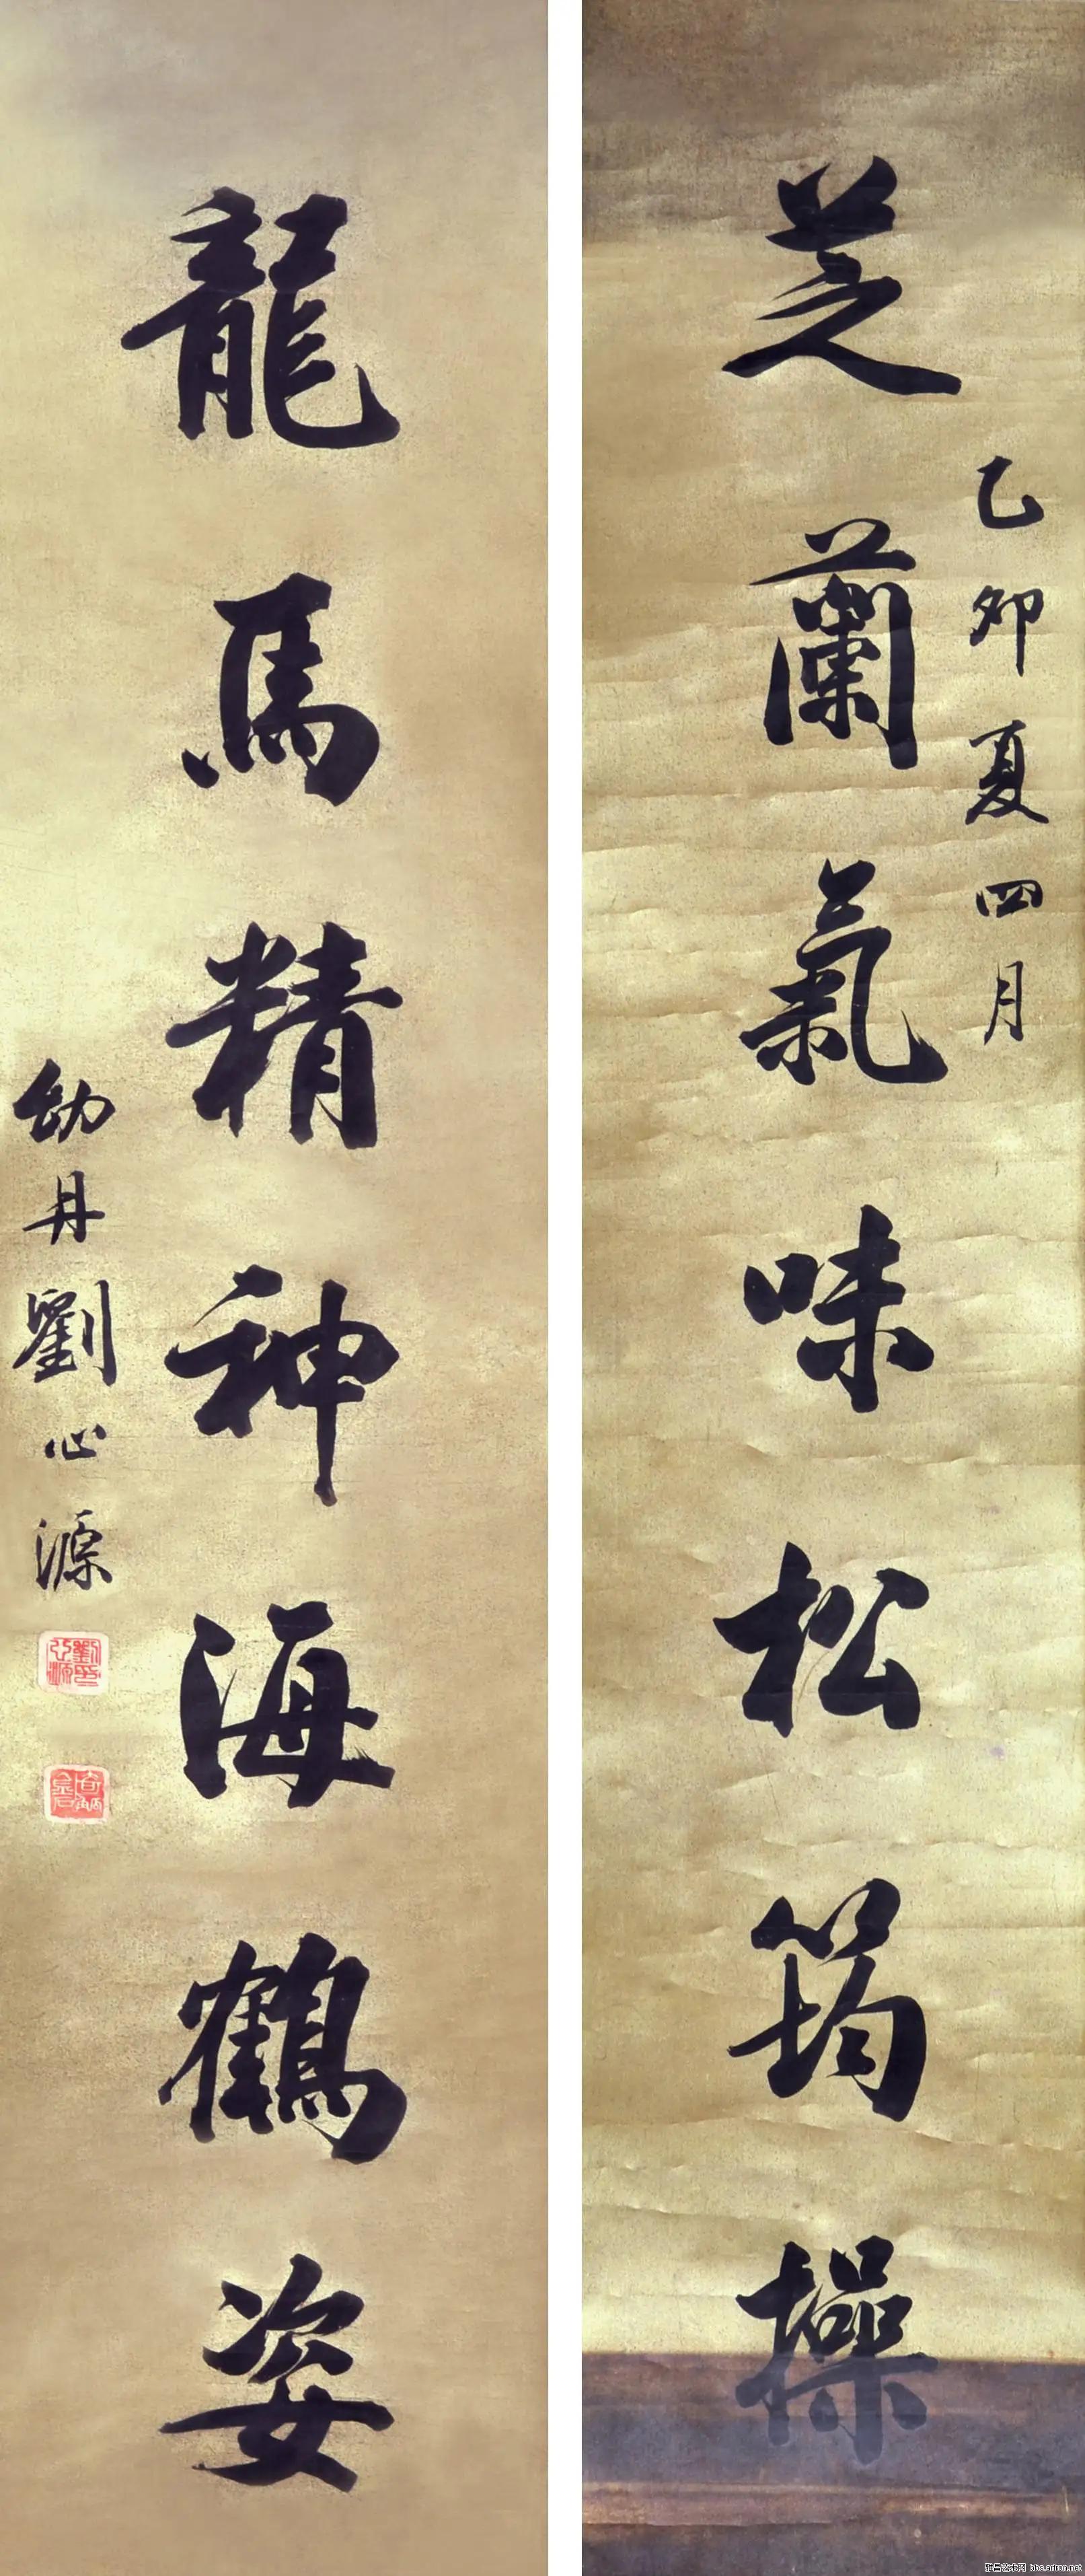 乙卯夏四月
芝蘭氣味松筠操
龍馬精神海鶴姿
幼丹劉心源
雅昌艺术网 bbs.artron.net